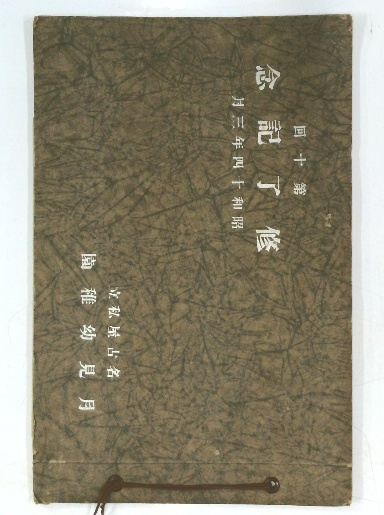 第十回
修了記念
昭和十四年三月
名古屋私立
月見幼稚園